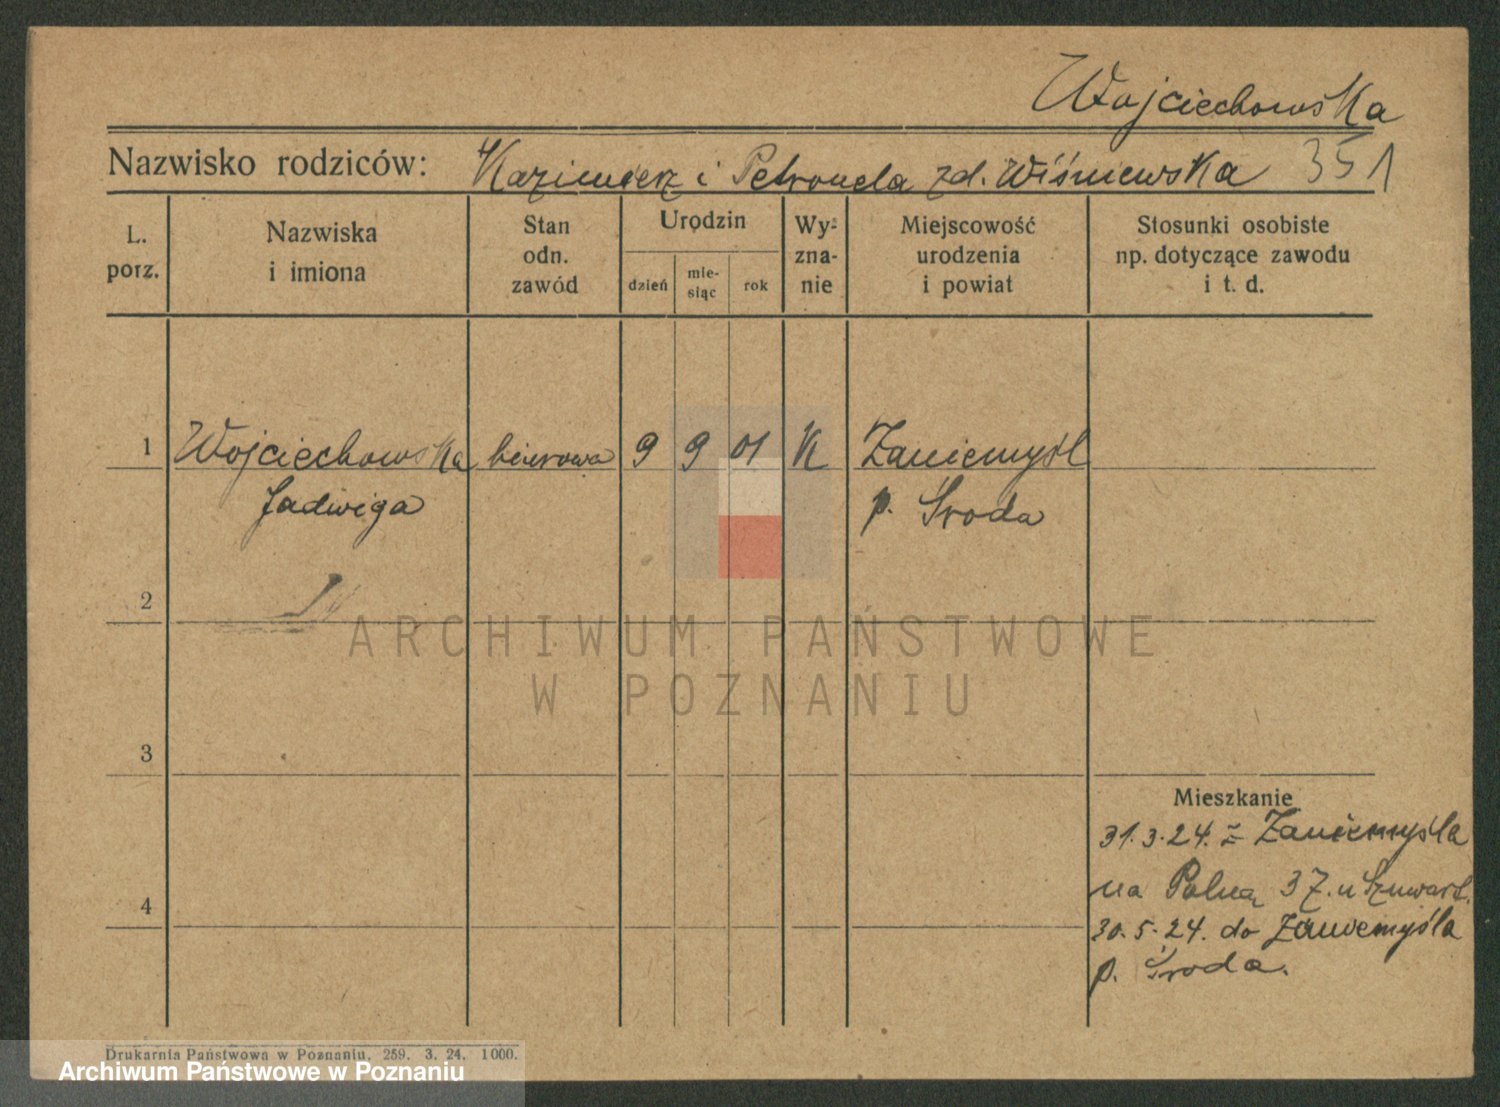 Wojciechowska
Nazwisko rodziców: Kazimierz i Petronela zd. Wiśniewska 351
L. porz.
Nazwiska i imiona
Stan odn. zawód
Urodzin
dzień
mie-siąc
rok
Wy-zna-nie
Miejscowość urodzenia i powiat
Stosunki osobiste np. dotyczące zawodu i t. d.
1 Wojciechowska biurowa 9 9 01 K Zaniemyśl
Jadwiga p. Środa
2
3
4
Mieszkanie
31.3.24. z Zaniemyśla
na Polną 37. u
30.5.24. do Zaniemyśla
p. Środa.
ARCHIWUM PAŃSTWOWE
W POZNANIU
Drukarnia Państwowa w Poznaniu. 259. 3. 24. 1000.
Archiwum Państwowe w Poznaniu